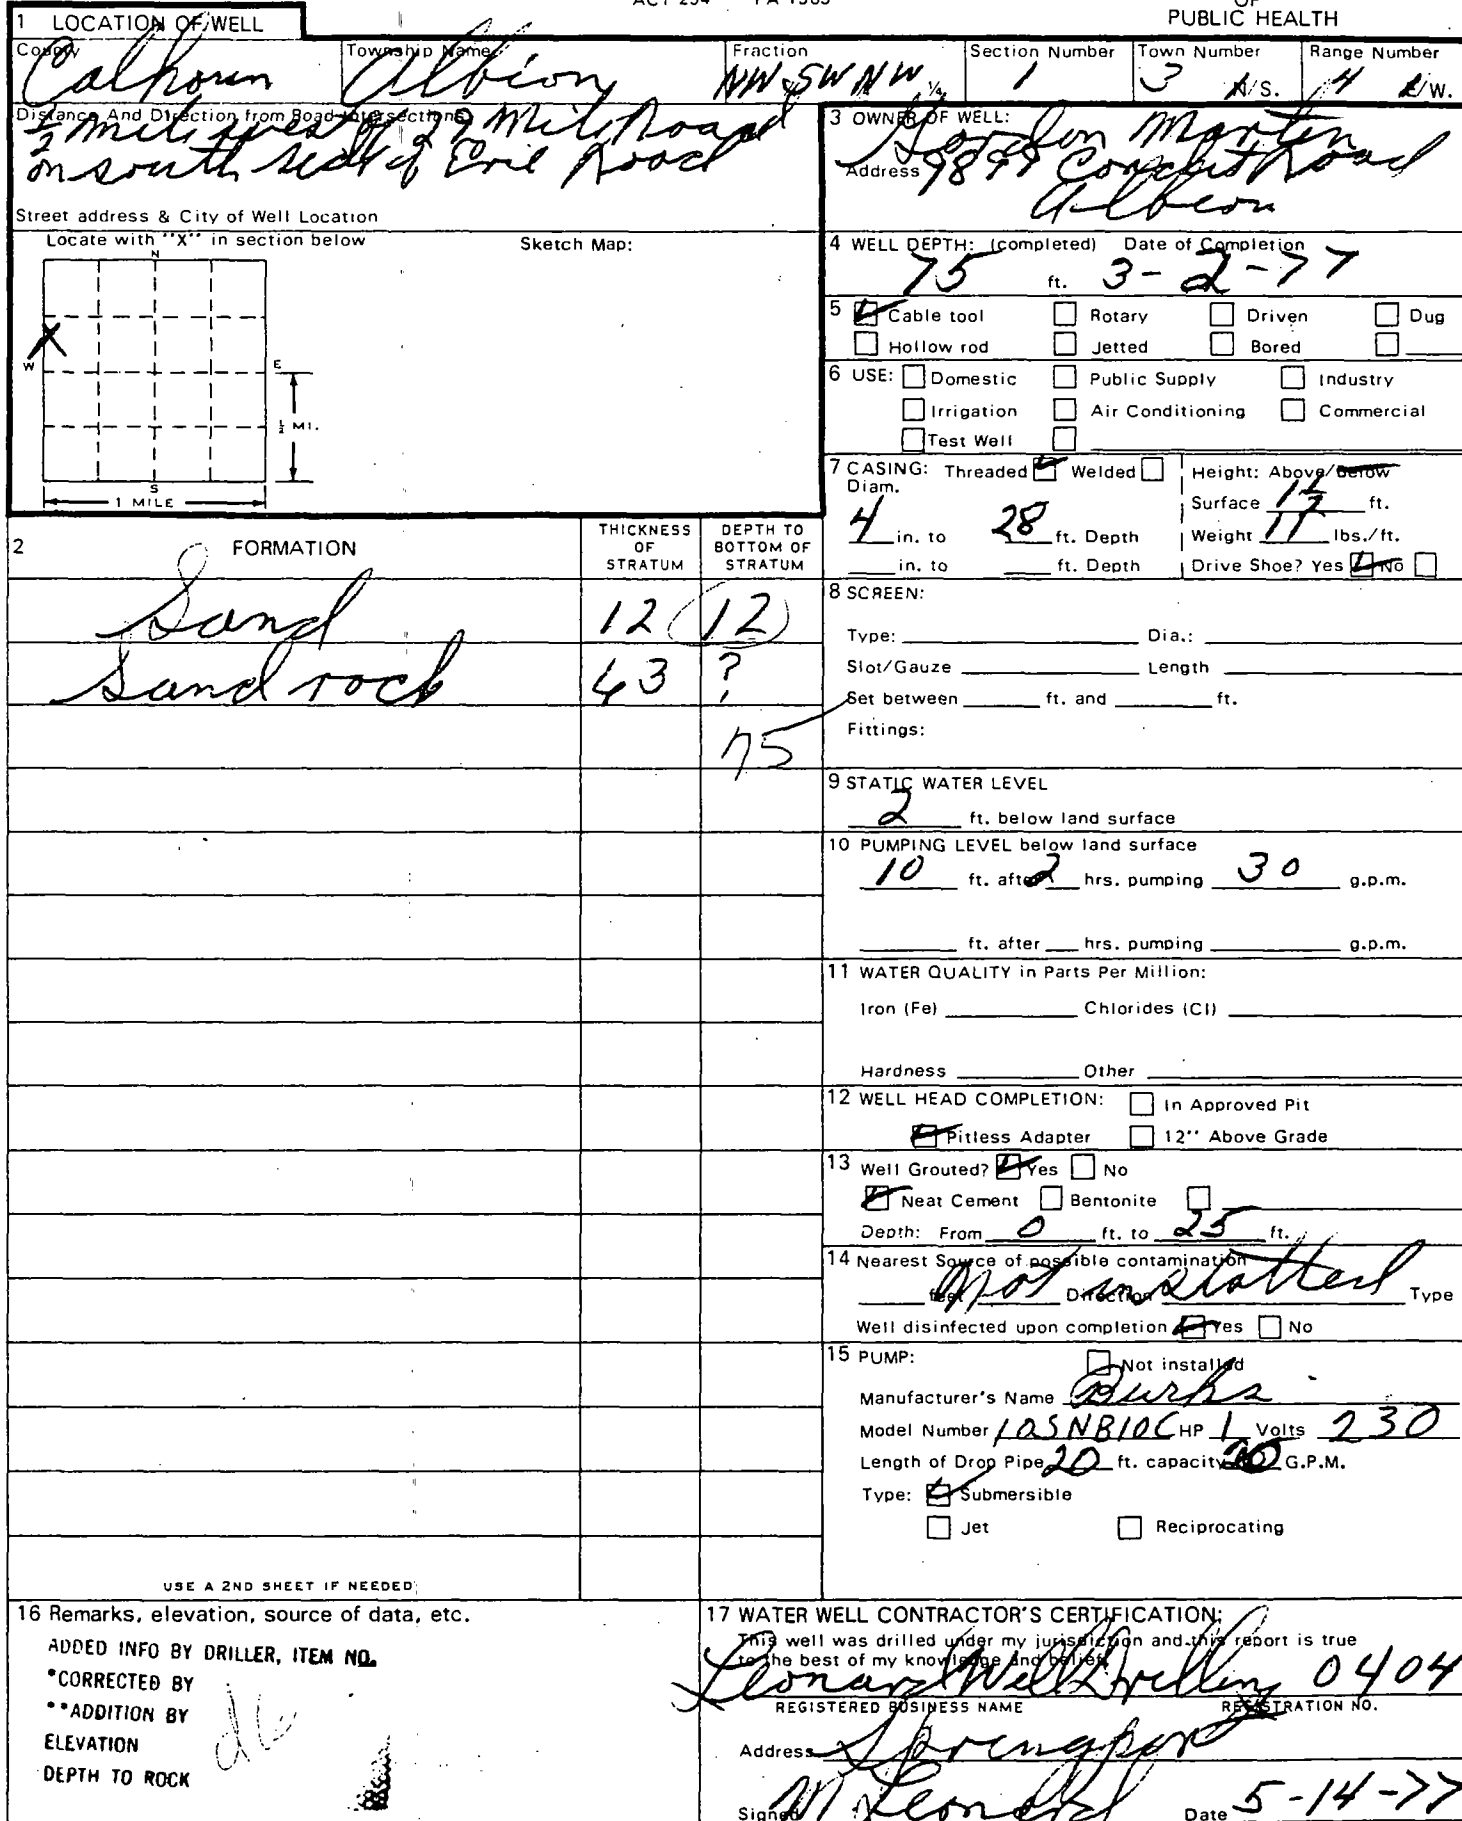 PUBLIC HEALTH
1 LOCATION OF WELL
County Calhoun Township Name Albion Fraction NW SW NW ¼ Section Number 1 Town Number 3 N/S. Range Number 4 E/W.
Distance And Direction from Road Intersections
½ mile west of 29 Mile Road
on south side of Erie Road
Street address & City of Well Location
Locate with "X" in section below
Sketch Map:
N
X
W
E
½ MI.
S
1 MILE
2 FORMATION THICKNESS OF STRATUM DEPTH TO BOTTOM OF STRATUM
Sand 12 12
Sand rock 43 ?
75
USE A 2ND SHEET IF NEEDED
3 OWNER OF WELL:
Gordon Martin
Address 9899 Condit Road
Albion
4 WELL DEPTH: (completed) Date of Completion
75 ft. 3-2-77
5 Cable tool Rotary Driven Dug
Hollow rod Jetted Bored
6 USE: Domestic Public Supply Industry
Irrigation Air Conditioning Commercial
Test Well
7 CASING: Threaded Welded Height: Above/Below
Diam. Surface 1½ ft.
4 in. to 28 ft. Depth Weight 11 lbs./ft.
in. to ft. Depth Drive Shoe? Yes No
8 SCREEN:
Type: Dia.:
Slot/Gauze Length
Set between ft. and ft.
Fittings:
9 STATIC WATER LEVEL
2 ft. below land surface
10 PUMPING LEVEL below land surface
10 ft. after 2 hrs. pumping 30 g.p.m.
ft. after hrs. pumping g.p.m.
11 WATER QUALITY in Parts Per Million:
Iron (Fe) Chlorides (Cl)
Hardness Other
12 WELL HEAD COMPLETION: In Approved Pit
Pitless Adapter 12" Above Grade
13 Well Grouted? Yes No
Neat Cement Bentonite
Depth: From 0 ft. to 25 ft.
14 Nearest Source of possible contamination
feet Not installed Direction Type
Well disinfected upon completion Yes No
15 PUMP: Not installed
Manufacturer's Name Burks
Model Number 10SNB10C HP 1 Volts 230
Length of Drop Pipe 20 ft. capacity G.P.M.
Type: Submersible
Jet Reciprocating
16 Remarks, elevation, source of data, etc.
ADDED INFO BY DRILLER, ITEM NO.
*CORRECTED BY
**ADDITION BY
ELEVATION
DEPTH TO ROCK
17 WATER WELL CONTRACTOR'S CERTIFICATION:
This well was drilled under my jurisdiction and this report is true
to the best of my knowledge and belief.
Leonard Well Drilling 0404
REGISTERED BUSINESS NAME REGISTRATION NO.
Address Springport
Signed M Leonard Date 5-14-77